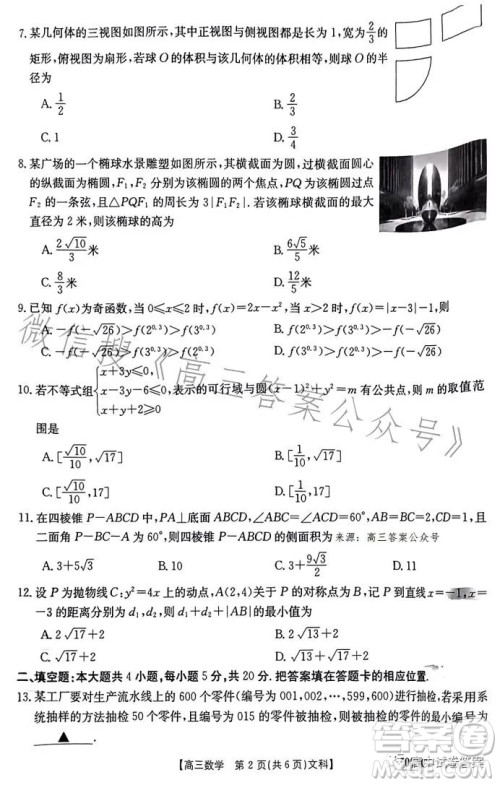 7. 某几何体的三视图如图所示,其中正视图与侧视图都是长为1,宽为2/3的
矩形,俯视图为扇形,若球O的体积与该几何体的体积相等,则球O的半
径为
A. 1/2 B. 2/3
C. 1 D. 3/4
8. 某广场的一个椭球水景雕塑如图所示,其横截面为圆,过横截面圆心
的纵截面为椭圆,F₁,F₂分别为该椭圆的两个焦点,PQ为该椭圆过点
F₂的一条弦,且△PQF₁的周长为3|F₁F₂|.若该椭球横截面的最大
直径为2米,则该椭球的高为
A. 2√10/3 米 B. 6√5/5 米
C. 8/3 米 D. 12/5 米
9. 已知f(x)为奇函数,当0≤x≤2时,f(x)=2x-x²,当x>2时,f(x)=|x-3|-1,则
A. -f(-√26)>f(2^0.3)>f(3^0.3) B. f(2^0.3)>f(3^0.3)>-f(-√26)
C. -f(-√26)>f(3^0.3)>f(2^0.3) D. f(3^0.3)>f(2^0.3)>-f(-√26)
10. 若不等式组{x+3y≤0, x-3y-6≤0, x+y+2≥0}表示的可行域与圆(x-1)²+y²=m有公共点,则m的取值范
围是
A. [√10/10, √17] B. [1/10, √17]
C. [√10/10, 17] D. [1/10, 17]
11. 在四棱锥P-ABCD中,PA⊥底面ABCD,∠ABC=∠ACD=60°,AB=BC=2,CD=1,且
二面角P-BC-A为60°,则四棱锥P-ABCD的侧面积为 来源:高三答案公众号
A. 3+5√3 B. 10 C. 3+9√3/2 D. 11
12. 设P为抛物线C:y²=4x上的动点,A(2,4)关于P的对称点为B,记P到直线x=-1,x=
-3的距离分别为d₁,d₂,则d₁+d₂+|AB|的最小值为
A. 2√17+2 B. 2√13+2 C. √17+2 D. √13+2
二、填空题:本大题共4小题,每小题5分,共20分.把答案填在答题卡的相应位置.
13. 某工厂要对生产流水线上的600个零件(编号为001,002,…,599,600)进行抽检,若采用系统
抽样的方法抽检50个零件,且编号为015的零件被抽检,则被抽检的零件的最小编号为
▲.
【高三数学 第2页(共6页)文科】
微信搜《高三答案公众号》
答案圈